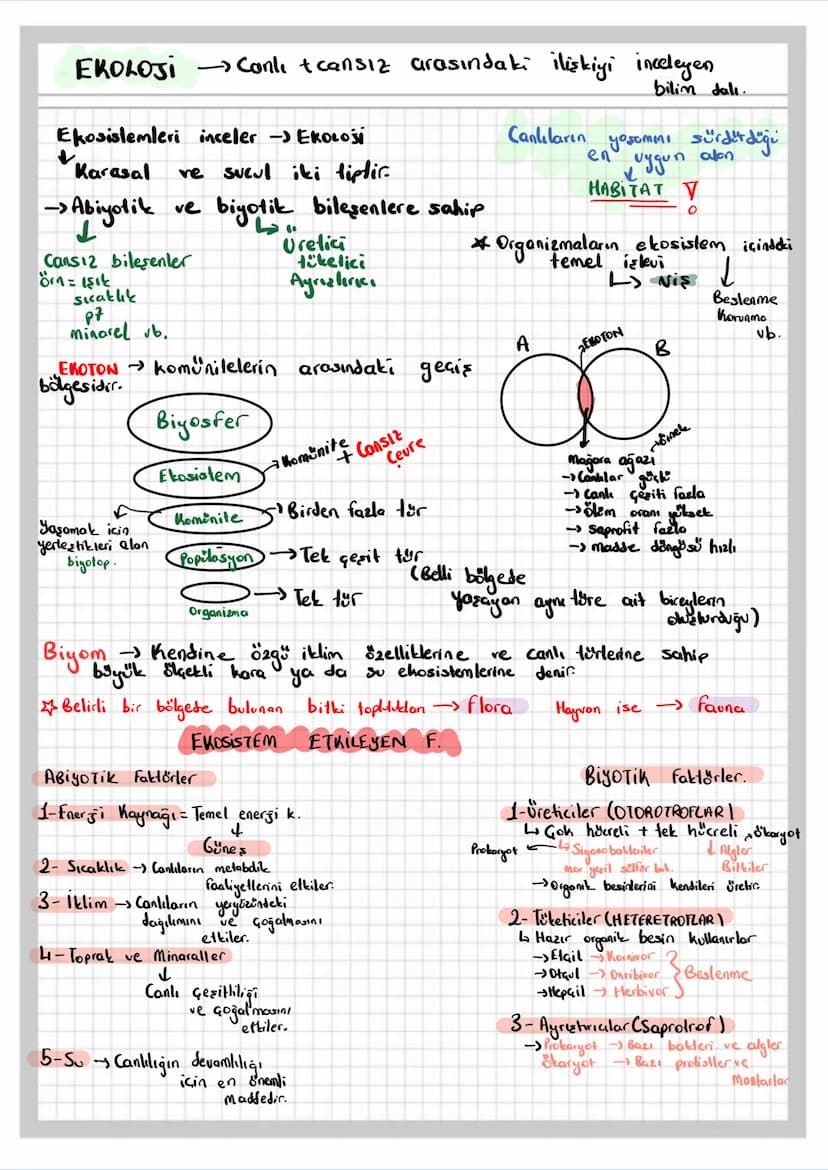 EKOLOJİ → Canlı + cansız arasındaki ilişkiyi inceleyen
bilim dalı.
Ekosistemleri inceler → EKOLOJİ
Karasal ve sucul iki tiptir.
→ Abiyotik ve biyotik bileşenlere sahip
Cansız bileşenler
örn = ışık
sıcaklık
minarel vb.
Üretici
tüketici
Ayrıştırıcı
Canlıların yaşamını sürdürdüğü
en uygun alan
HABİTAT !
* Organizmaların ekosistem içindeki
temel işlevi
↳ Niş
Beslenme
Korunma
vb.
EKOTON → komünitelerin arasındaki geçiş
bölgesidir.
A
EKOTON
B
Biyosfer
Ekosistem
Komünite + Cansız
Çevre
Komünite → Birden fazla tür
Yaşamak için
yerleştikleri alan
biyotop.
Popülasyon → Tek çeşit tür
(Belli bölgede
yaşayan aynı türe ait bireylerin
oluşturduğu)
→ Tek tür
Organizma
örnek
Mağara ağazı
→ Canlılar güçlü
→ Canlı çeşiti fazla
→ Ölüm oranı yüksek
→ Saprofit fazla
→ madde döngüsü hızlı
Biyom → Kendine özgü iklim özelliklerine ve canlı türlerine sahip
büyük ölçekli kara ya da su ekosistemlerine denir.
☆ Belirli bir bölgede bulunan bitki toplulukları → flora Hayvan ise → fauna
EKOSİSTEM ETKİLEYEN F.
Abiyotik Faktörler
1-Enerji Kaynağı = Temel enerji k.
↓
Güneş
2- Sıcaklık → Canlıların metabolik
faaliyetlerini etkiler.
3- İklim → Canlıların yeryüzündeki
dağılımını ve çoğalmasını
etkiler.
4- Toprak ve Minaraller
↓
Canlı çeşitliliği
ve çoğalmasını
etkiler.
5-Su → Canlılığın devamlılığı
için en önemli
maddedir.
Biyotik Faktörler.
1-Üreticiler (OTOROTROFLAR)
↳ Çok hücreli + tek hücreli → Ökaryot
Prokaryot ← Siyanobakteriler ↓ Algler
mor yeşil sülfür bak. Bitkiler
→ Organik besinlerini kendileri üretir.
2- Tüketiciler (HETERETROFLAR)
↳ Hazır organik besin kullanırlar
→ Etçil → Karnivor
→ Otçul → Omnibivor } Beslenme
→ Hepçil → Herbivor
3- Ayrıştırıcılar (Saprotrof)
→ Prokaryot → Bazı bakteri ve algler
Ökaryot → Bazı protistler ve
Mantarlar